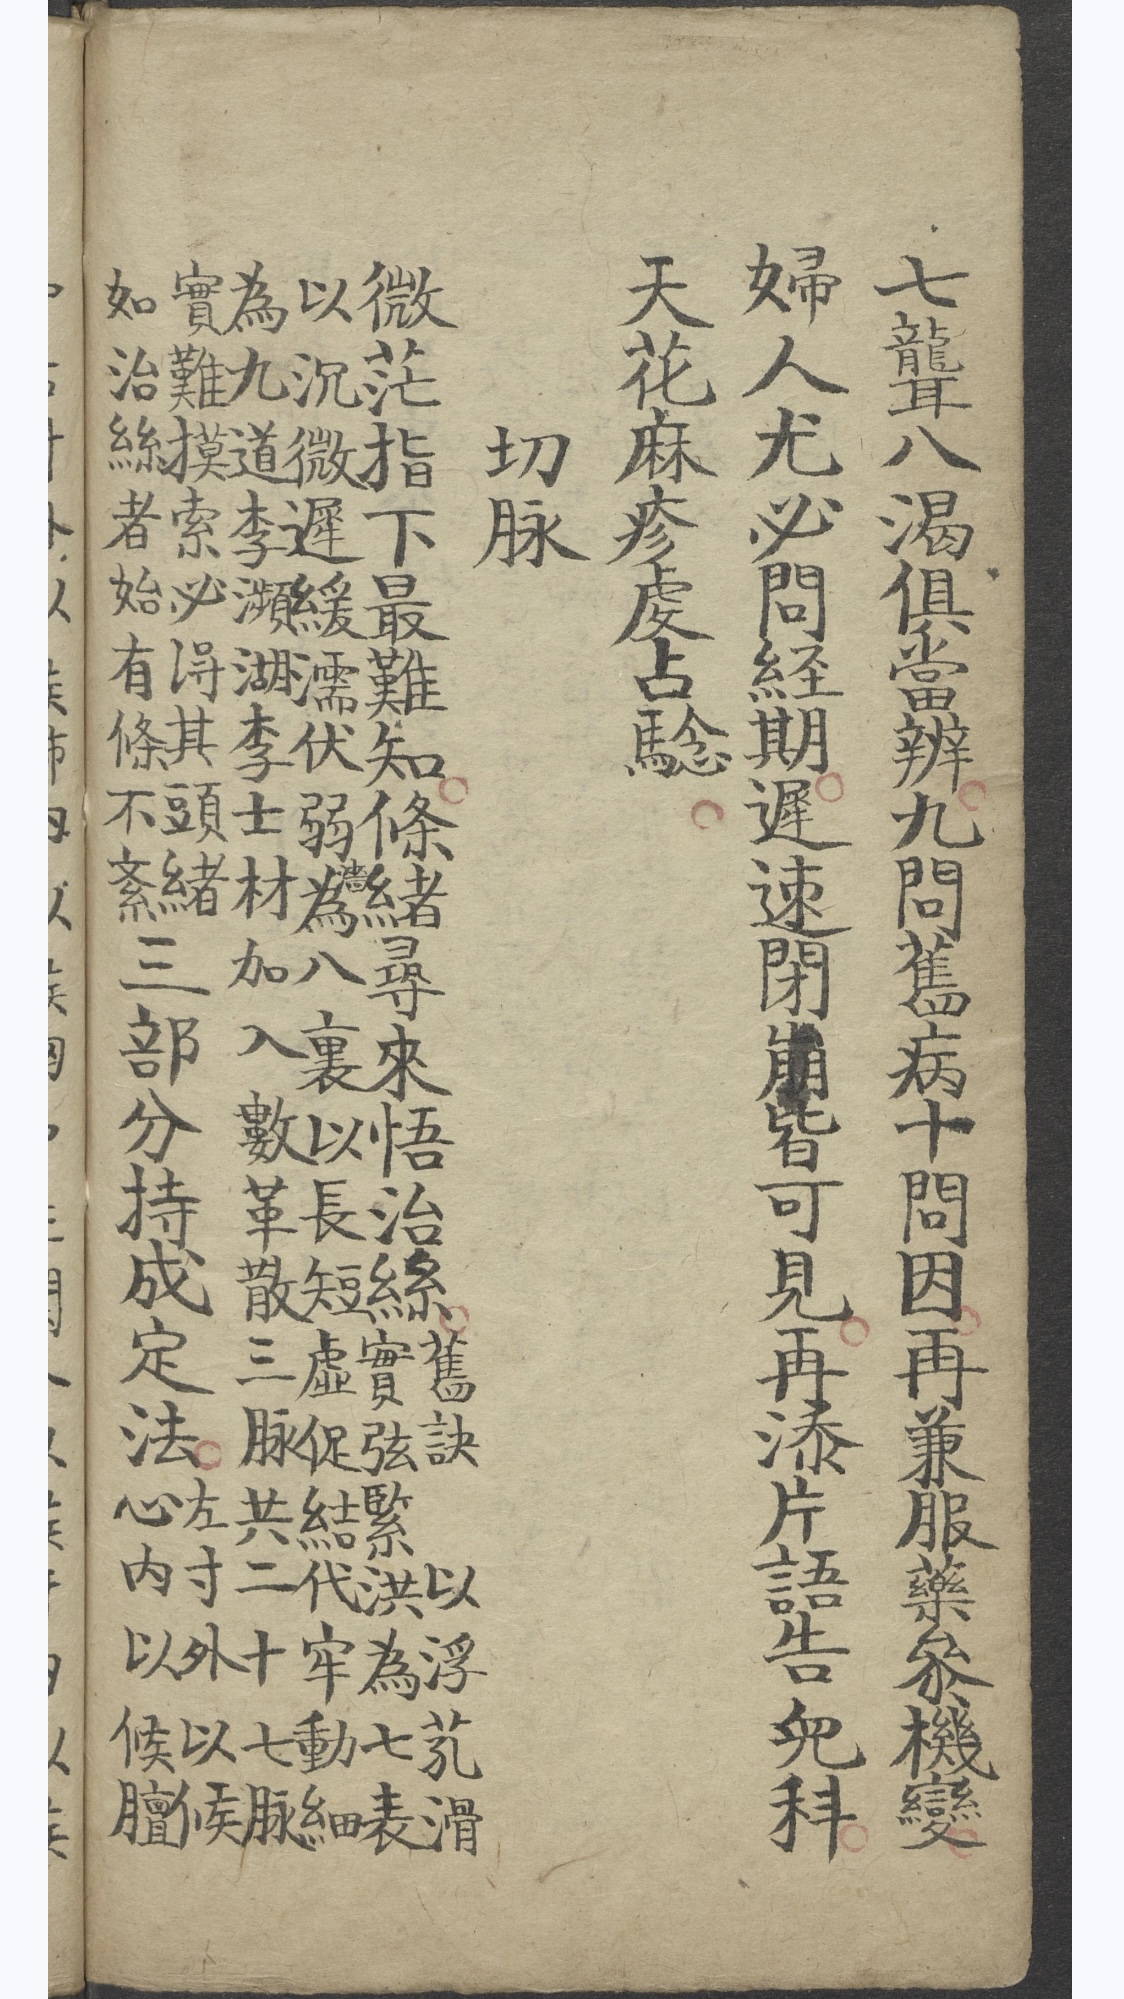 七聾八渴俱當辨九問舊病十問因再兼服藥參機變
婦人尤必問経期遲速閉崩皆可見再添片語告兒科
天花麻疹虔占騐
切脉
微茫指下最難知條緒尋來悟治絲
舊訣以浮芤滑
實弦緊洪為七表
以沉微遲緩濡伏弱濇為八裏以長短虛促結代牢動細
為九道李瀕湖李士材加入數革散三脉共二十七脉
實難摸索必得其頭緒
如治絲者始有條不紊
三部分持成定法
左寸外以候
心内以候膻